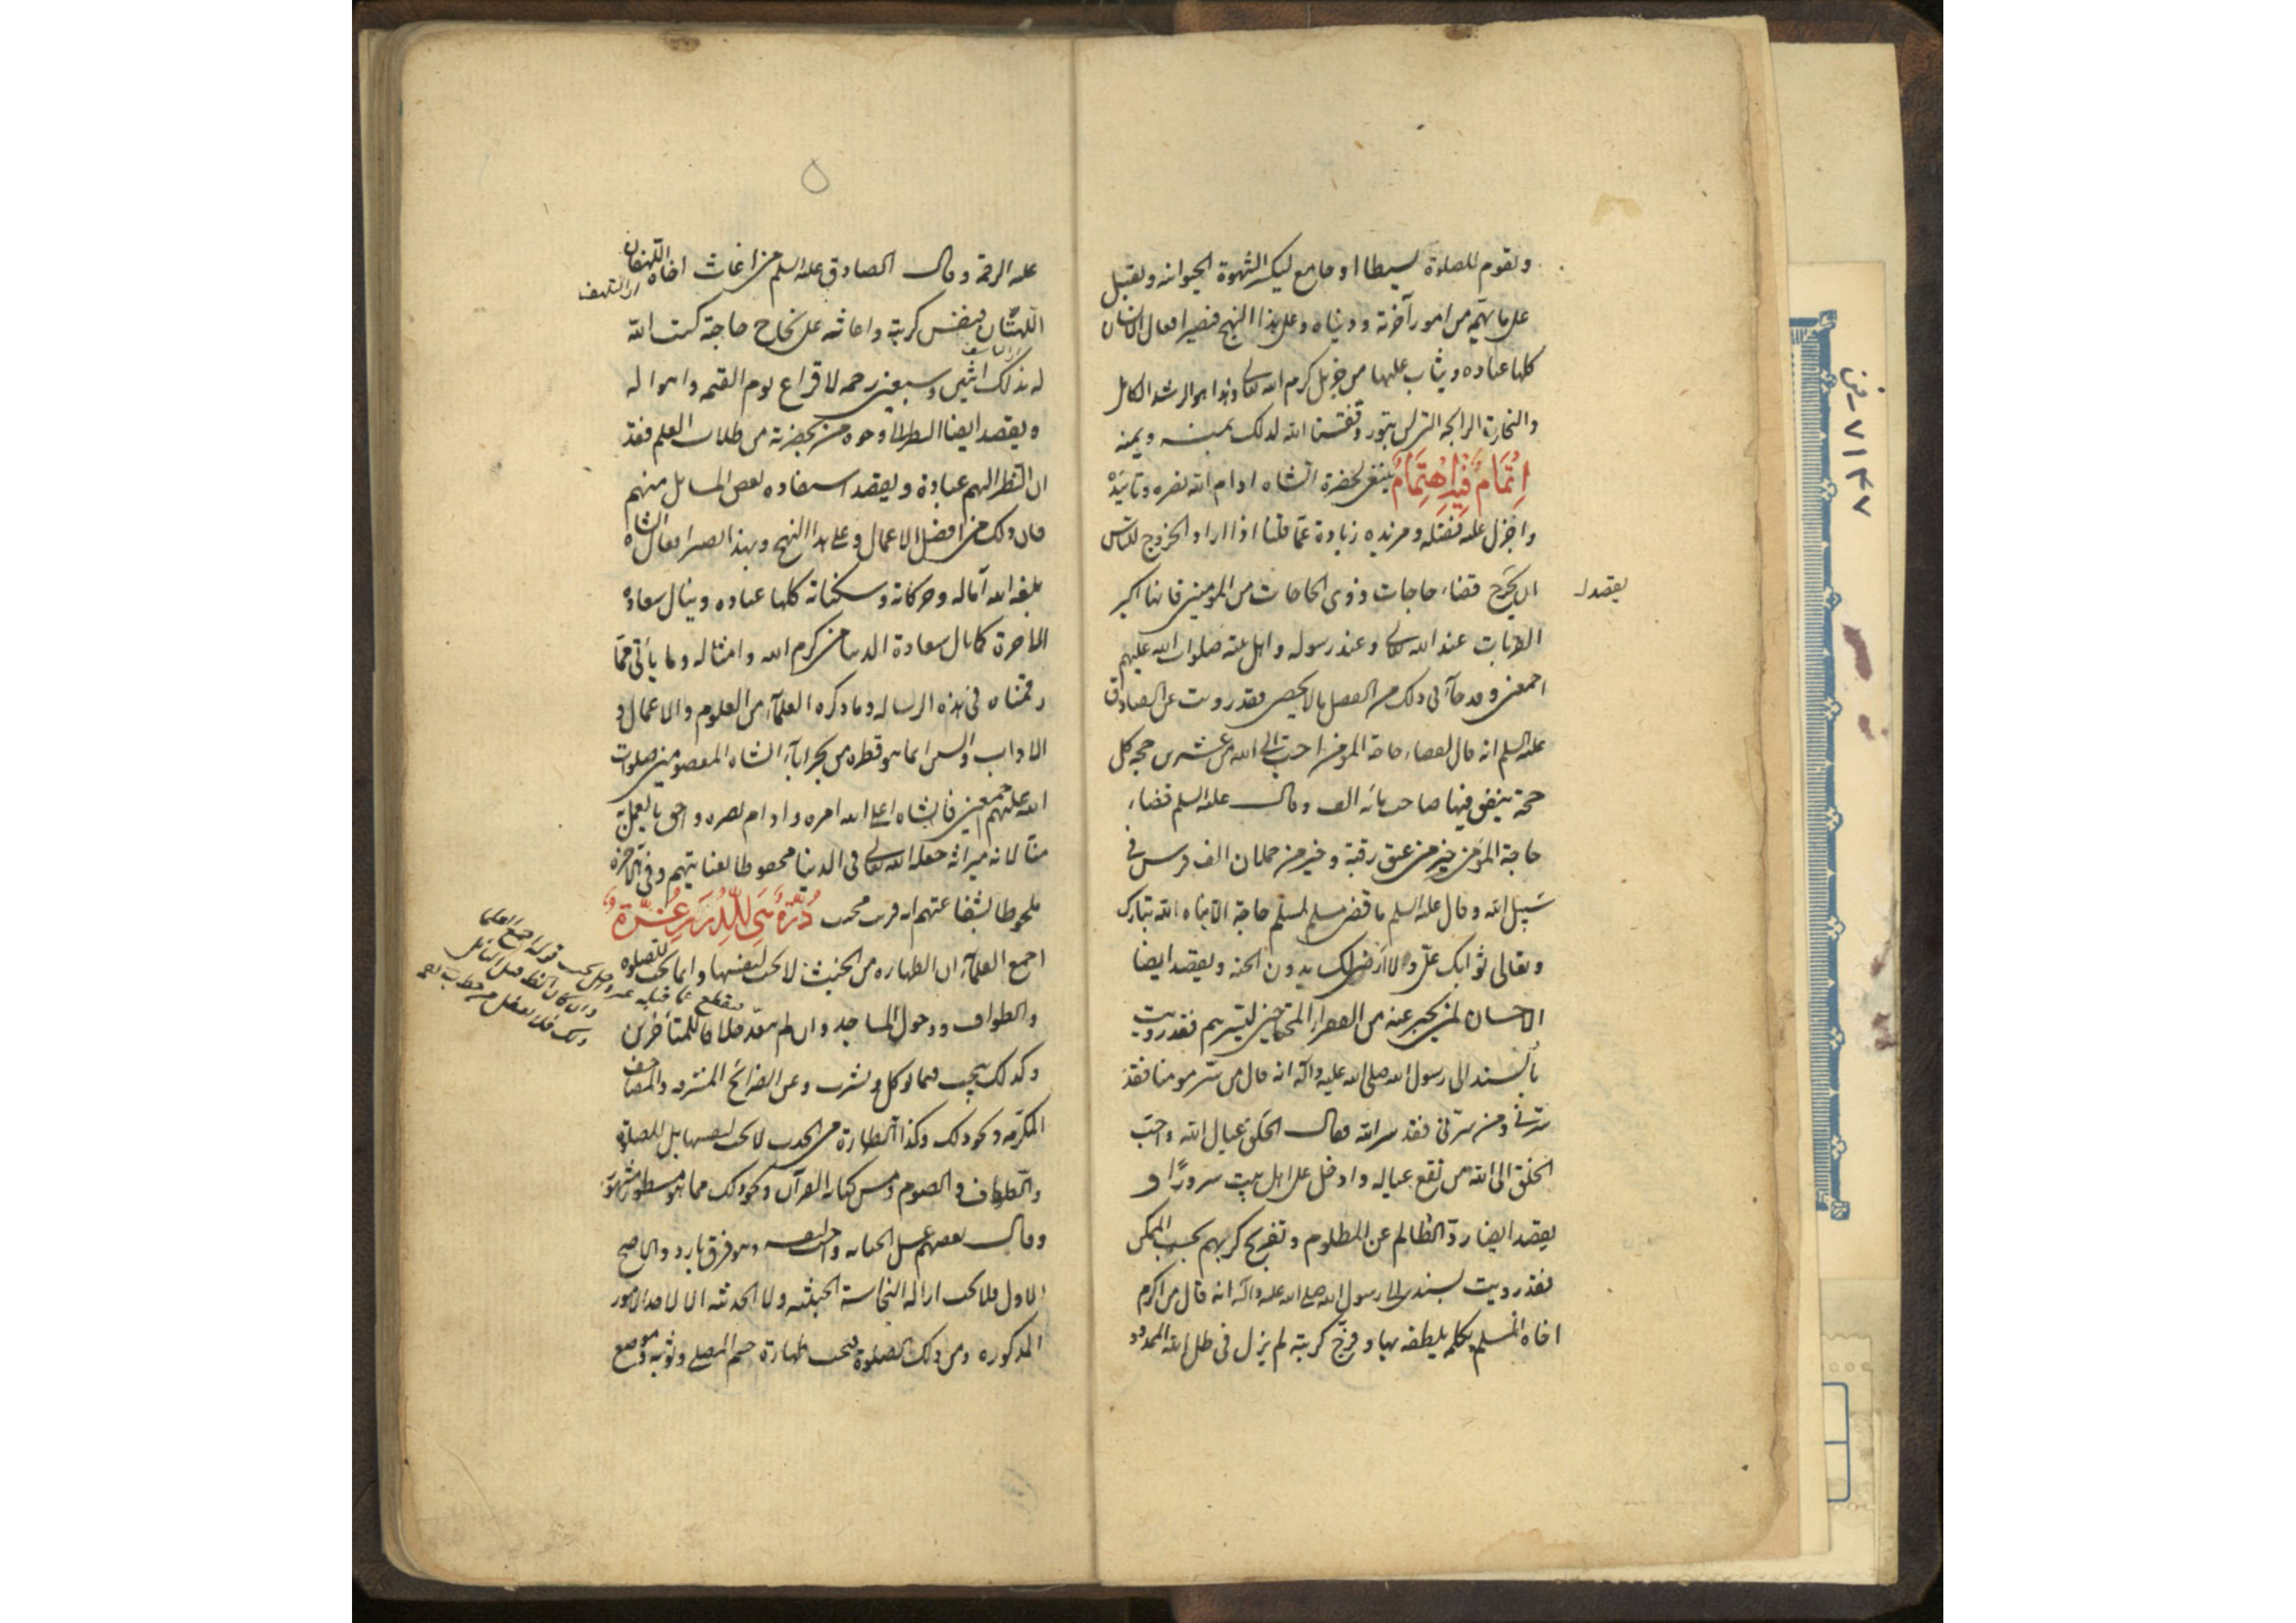 ويقوم للصلوة نشيطا او جامع ليكسر الشهوة الحيوانية ويقبل
على ما يهمه من امور آخرته ودنياه وعلى هذا النهج فتصير افعال الانسان
كلها عباده ويثاب عليها من جزيل كرم الله تعالى وهذا هو الرشد الكامل
والتجارة الرابحة التي لن تبور وفقنا الله لذلك بمنه ويمنه
اِتْمَامٌ فِيهِ اِهْتِمَامٌ ينبغي لحضرة الشاه ادام الله نصره وتاييده
واجزل عليه فضله ومزيده زيادة عما قلنا اذا اراد الخروج للناس
ان يخرج قضاء حاجات ذوى الحاجات من المؤمنين فانها اكبر
يقصد
القربات عند الله تعالى وعند رسوله واهل بيته صلوات الله عليهم
اجمعين وقد جآء فى ذلك من الفضل ما لا يحصى فقد رويت عن الصادق
عليه السلم انه قال لقضاء حاجة المؤمن احب الى الله من عشرين حجه كل
حجة ينفق فيها صاحبها مائه الف وقال عليه السلم قضاء
حاجة المؤمن خير من عتق رقبة وخير من حملان الف فرس فى
سبيل الله وقال عليه السلم ما قضى مسلم لمسلم حاجة الا ناداه الله تبارك
وتعالى ثوابك علىّ ولا ارضى لك بدون الجنه ويقصد ايضا
الاحسان لمن يخبر عنه من الفقراء المحتاجين ليسرهم فقد رويت
بالسند الى رسول الله صلى الله عليه وآله انه قال من سر مومنا فقد
سرنى ومن سرنى فقد سر الله وقال الخلق عيال الله واحب
الخلق الى الله من نفع عياله وادخل على اهل بيت سرورًا و
يقصد ايضا ردّ الظالم عن المظلوم وتفريج كربهم بحسب الممكن
فقد رويت بسندى الى رسول الله صلى الله عليه وآله انه قال من اكرم
اخاه المسلم بكلمه يلطفه بها وفرّج كربته لم يزل فى ظل الله الممدود
۵
عليه الرحمة وقال الصادق عليه السلم من اغاث اخاه اللهفان
اللهثان فنفس كربته واعانه على نجاح حاجته كتب الله
له بذلك اثنين وسبعين رحمه لافزاع يوم القيمه واهواله
ويقصد ايضا النظر الى وجوه من بحضرته من طلاب العلم فقد
ان النظر اليهم عبادة ويقصد استفاده بعض المسايل منهم
فان ذلك من افضل الاعمال وعلى هذا النهج وبهذا تصير افعال الشاه
بلغه الله آماله وحركاته وسكناته كلها عباده وينال سعادة
الاخرة كما نال سعادة الدنيا من كرم الله وامثاله وما يأتي مما
رقمناه فى هذه الرساله وما ذكره العلمآء من العلوم والاعمال و
الاداب والسنن انما هو قطره من بحر ابآء الشاه المعصومين صلوات
الله عليهم اجمعين فالشاه اعلى الله امره وادام نصره احق بالعمل به
منا لانه ميراثه جعله الله تعالى فى الدنيا محفوظا بعنايتهم وفى الاخرة
ملحوظا بشفاعتهم انه قريب مجيب
اجمع العلمآء ان الطهاره من الخبث لا تجب لنفسها وانما تجب للصلوه
والطواف ودخول المساجد وان لم يتعدّ خلافا للمتأخرين
وكذلك يجب فيما يوكل ويشرب وعن الضرائح المشرفه والمصاحف
المكرمه ونحو ذلك وكذا الطهارة من الحدث لا تجب لنفسها بل للصلوة
والطواف والصوم ومس كتابة القرآن ونحو ذلك مما هو مسطور مشهور
وقال بعضهم غسل الجنابه واجب لنفسه وهو فرق بارد والاصح
الاول فلا تجب ازاله النجاسة الخبثيه ولا الحدثيه الا لاحد الامور
المذكوره ومن ذلك الصلوة فتجب طهارة جسم المصلى وثوبه وموضع